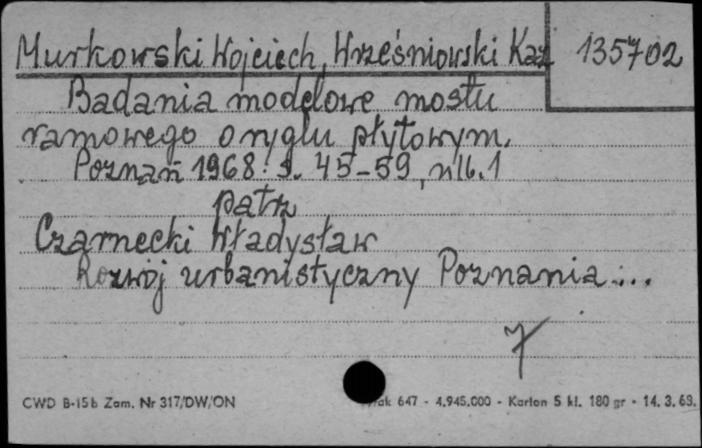 Murkowski Wojciech, Wrześniowski Kaz 135702
Badania modelowe mostu
ramowego o ryglu płytowym.
Poznań 1968. s. 45-59, nlb. 1
patrz
Czarnecki Władysław
Rozwój urbanistyczny Poznania...
7
CWD B-15b Zam. Nr 317/DW/ON
647 - 4.945.000 - Karton 5 kl. 180 gr - 14. 3. 69.